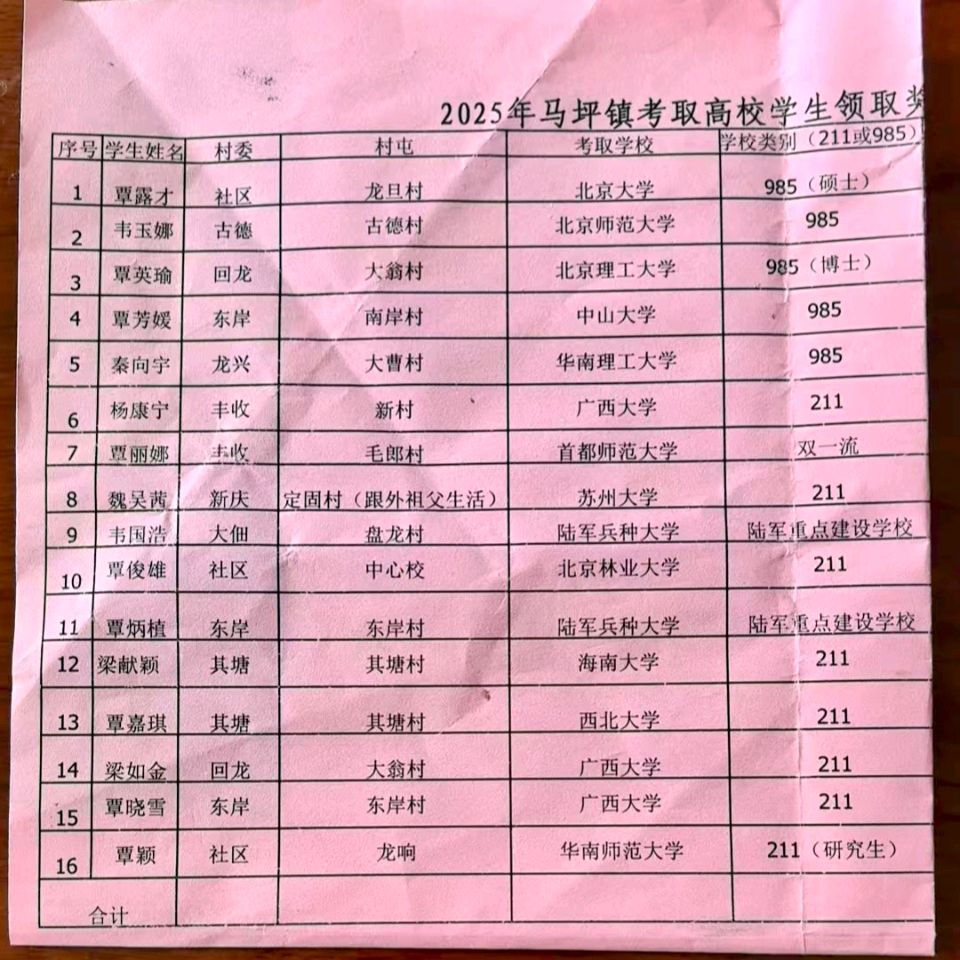 2025年马坪镇考取高校学生领取奖
序号 学生姓名 村委 村屯 考取学校 学校类别（211或985）
1 覃露才 社区 龙旦村 北京大学 985（硕士）
2 韦玉娜 古德 古德村 北京师范大学 985
3 覃英瑜 回龙 大翁村 北京理工大学 985（博士）
4 覃芳媛 东岸 南岸村 中山大学 985
5 秦向宇 龙兴 大曹村 华南理工大学 985
6 杨康宁 丰收 新村 广西大学 211
7 覃丽娜 丰收 毛郎村 首都师范大学 双一流
8 魏吴茜 新庆 定固村（跟外祖父生活） 苏州大学 211
9 韦国浩 大佃 盘龙村 陆军兵种大学 陆军重点建设学校
10 覃俊雄 社区 中心校 北京林业大学 211
11 覃炳植 东岸 东岸村 陆军兵种大学 陆军重点建设学校
12 梁献颖 其塘 其塘村 海南大学 211
13 覃嘉琪 其塘 其塘村 西北大学 211
14 梁如金 回龙 大翁村 广西大学 211
15 覃晓雪 东岸 东岸村 广西大学 211
16 覃颖 社区 龙响 华南师范大学 211（研究生）
合计